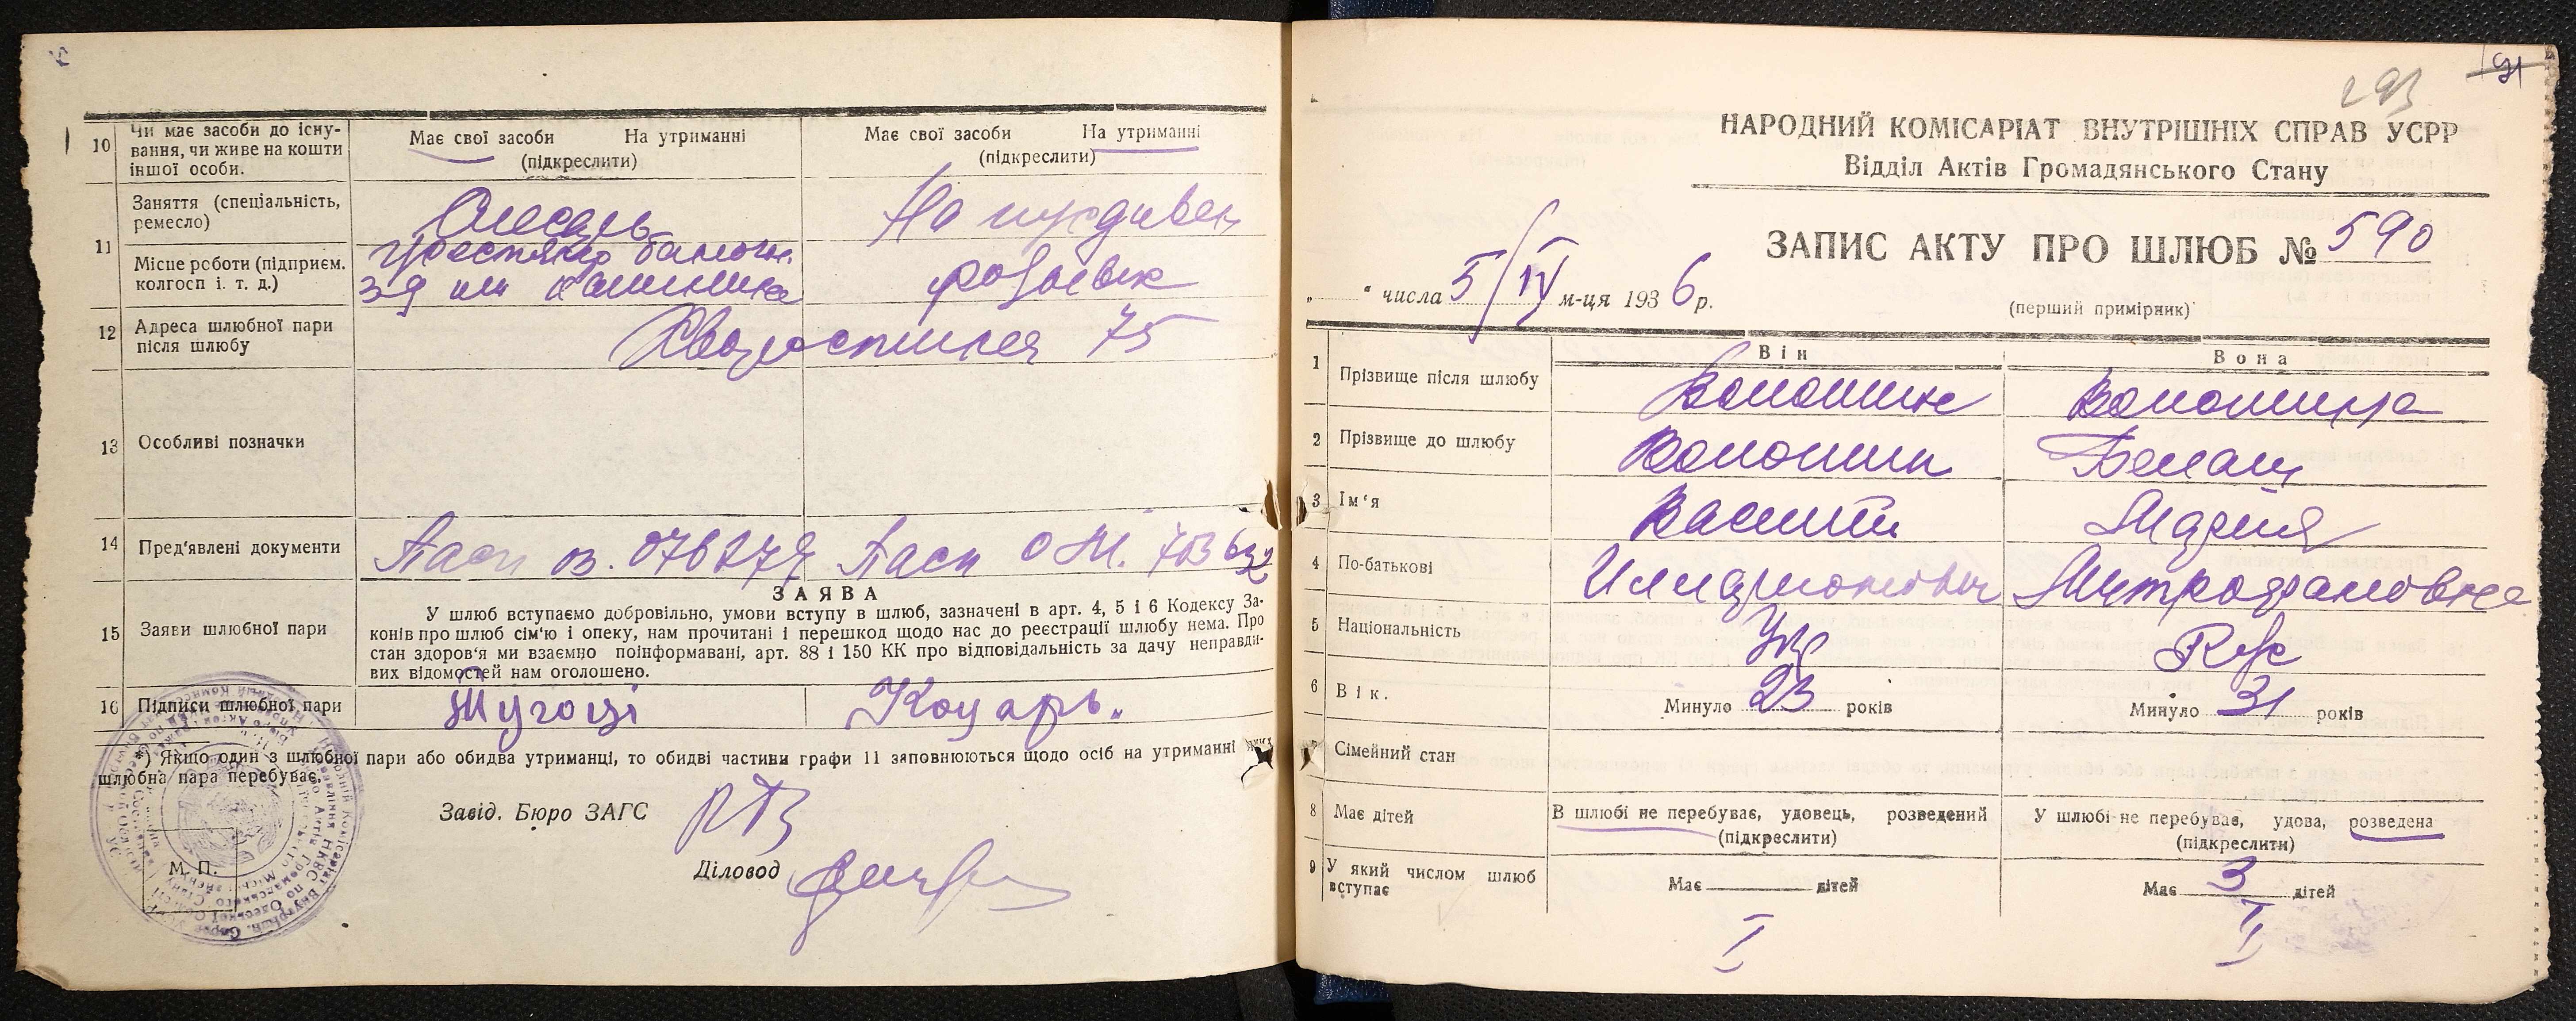 10 Чи має засоби до існу-
вання, чи живе на кошти
іншої особи.
Має свої засоби На утриманні
(підкреслити)
Має свої засоби На утриманні
(підкреслити)
11 Заняття (спеціальність,
ремесло)
Слесарь
На иждивен
Місце роботи (підприєм.
колгосп і. т. д.)
12 Адреса шлюбної пари
після шлюбу
75
13 Особливі позначки
14 Пред'явлені документи
Пасп
Пасп
15 Заяви шлюбної пари
ЗАЯВА
У шлюб вступаємо добровільно, умови вступу в шлюб, зазначені в арт. 4, 5 і 6 Кодексу За-
конів про шлюб сім'ю і опеку, нам прочитані і перешкод щодо нас до реєстрації шлюбу нема. Про
стан здоров'я ми взаємно поінформавані, арт. 88 і 150 КК про відповідальність за дачу неправди-
вих відомостей нам оголошено.
16 Підписи шлюбної пари
Коцарь.
*) Якщо один з шлюбної пари або обидва утриманці, то обидві частини графи 11 заповнюються щодо осіб на утриманні яких
шлюбна пара перебуває.
Завід. Бюро ЗАГС
Діловод
М. П.
293
191
НАРОДНИЙ КОМІСАРІАТ ВНУТРІШНІХ СПРАВ УСРР
Відділ Актів Громадянського Стану
ЗАПИС АКТУ ПРО ШЛЮБ № 590
„ “ числа 5/IV м-ця 1936 р.
(перший примірник)
Він Вона
1 Прізвище після шлюбу Волошин Волошина
2 Прізвище до шлюбу Волошин
3 Ім'я Василий Мария
4 По-батькові Иларионович Митрофановна
5 Національність Укр Рус
6 Вік. Минуло 23 років Минуло 31 років
7 Сімейний стан
8 Має дітей
В шлюбі не перебуває, удовець, розведений
(підкреслити)
У шлюбі не перебуває, удова, розведена
(підкреслити)
9 У який числом шлюб
вступає
Має дітей
Має 3 дітей
I
I